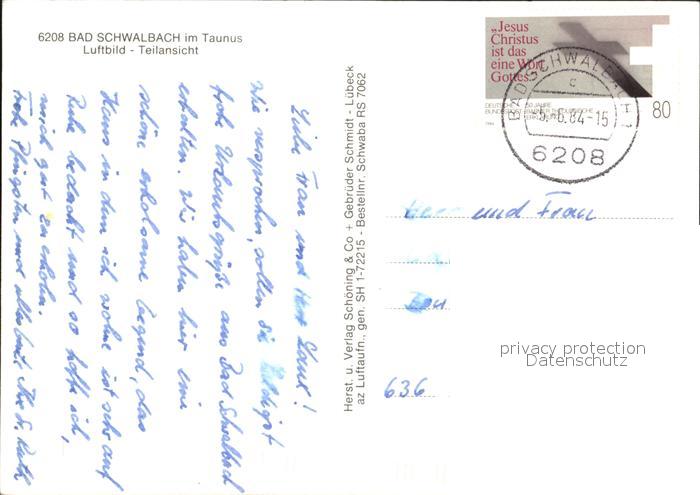 6208 BAD SCHWALBACH im Taunus
Luftbild - Teilansicht
"Jesus
Christus
ist das
eine Wort
Gottes"
80
BAD SCHWALBACH 1
c
-5.-6.84-15
6208
Liebe Frau und Herr
Wie versprochen, sollen Sie
frohe Urlaubsgrüße aus Bad Schwalbach
erhalten. Wir haben hier eine
schöne erholsame Gegend, das
Haus in dem ich wohne ist sehr auf
Ruhe bedacht und so hoffe ich,
mich gut zu erholen.
Frohe Pfingsten und alles Gute Ihre
Herst. u. Verlag Schöning & Co + Gebrüder Schmidt - Lübeck
az Luftaufn., gen. SH 1-72215 - Bestellnr. Schwaba RS 7062
Herr und Frau
636
privacy protection
Datenschutz